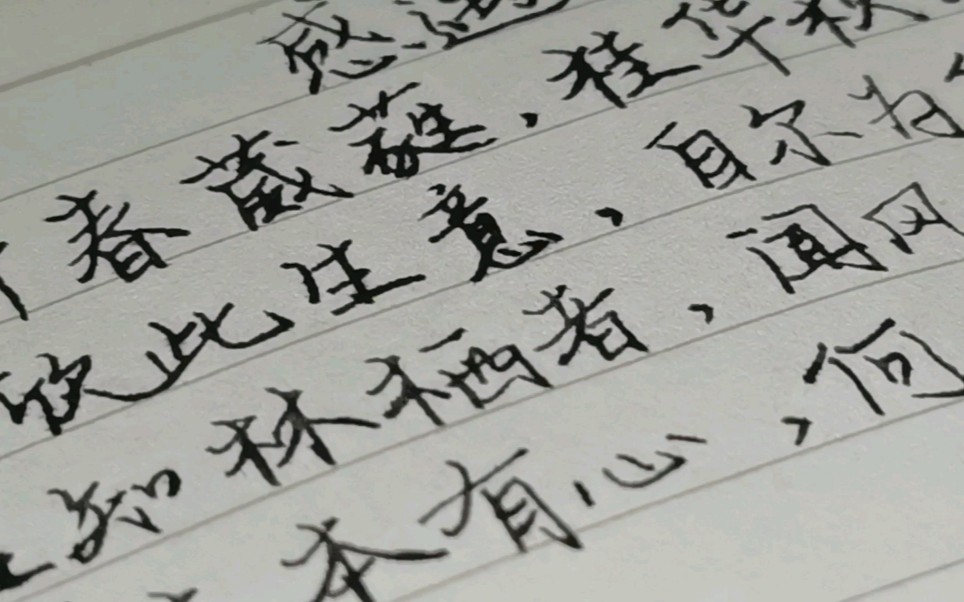 感遇
春葳蕤，桂华秋
欣此生意，自尔为
知林栖者，闻风
本有心，何